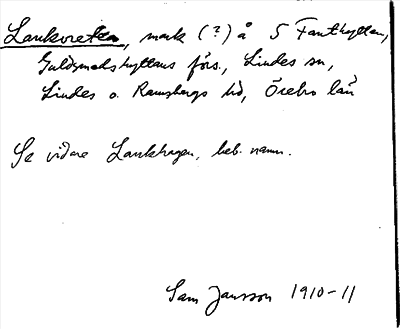 Lankvretea, mark (?) å S Fanthyttan,
Guldsmedshyttans förs., Lindes sn,
Lindes o. Ramsbergs hd, Örebro län
Se vidare Lankhagen, beb. namn.
Sam Jansson 1910-11